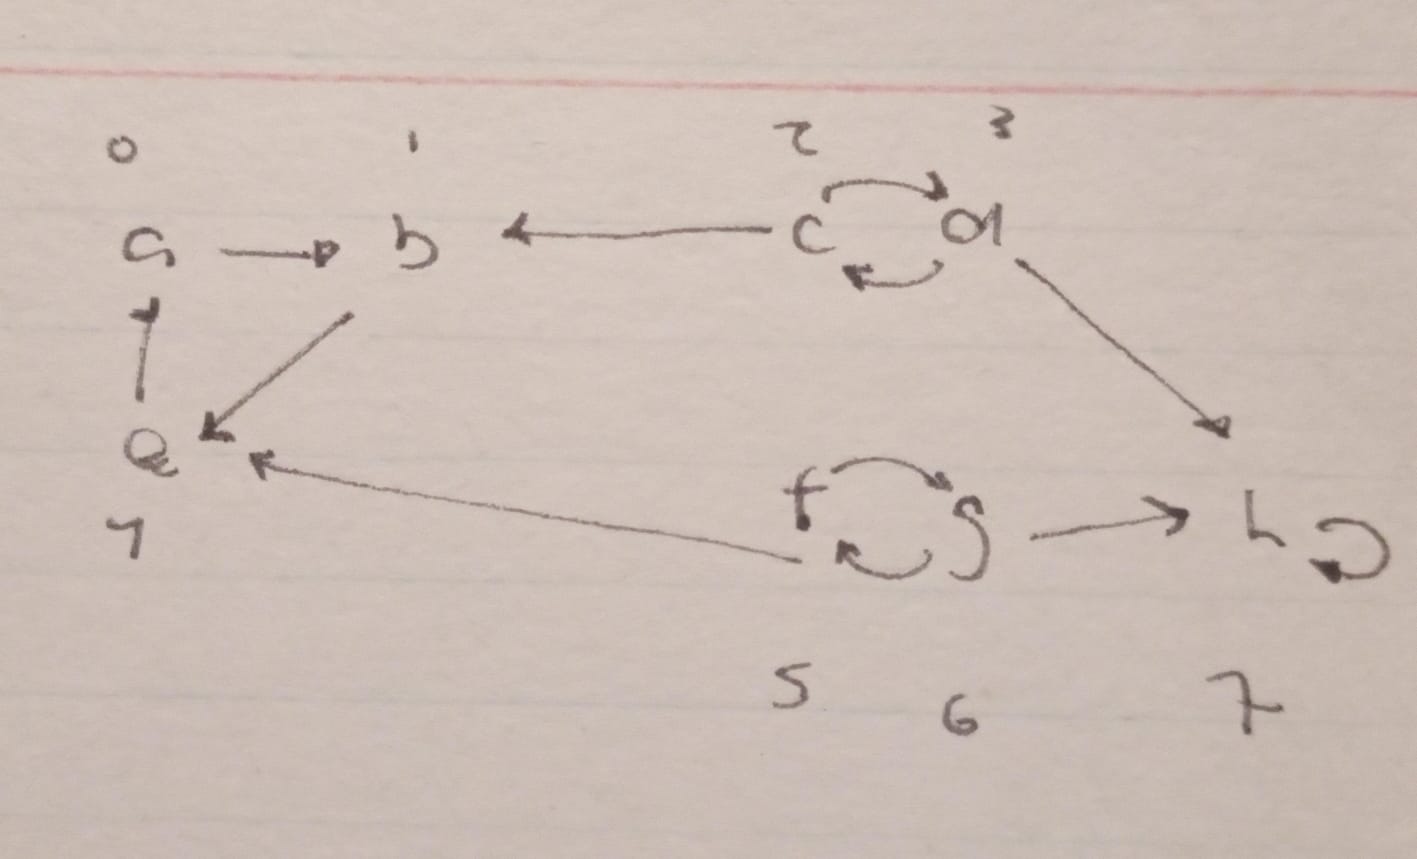 0 1 2 3
a b c d
e f g h
4
5 6 7